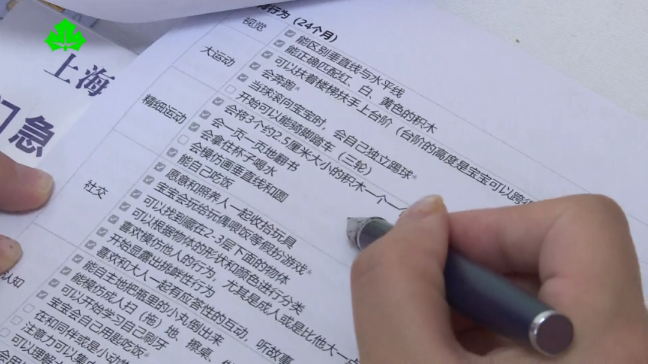 上海
门急
行为（24个月）
视觉
能区别垂直线与水平线
能正确匹配红、白、黄色的积木
大运动
可以扶着楼梯扶手上台阶（台阶的高度是宝宝可以跨
会奔跑
当球滚向宝宝时，会自己独立踢球
开始可能骑脚踏车（三轮）
精细运动
会将3个约2.5厘米大小的积木一个一
会一页一页地翻书
会拿住杯子喝水
会模仿画垂直线和圆
能自己吃饭
社交
愿意和照养人一起收拾玩具
宝宝会玩给玩偶喂饭等假扮游戏
可以找到藏在2-3层下面的物体
可以根据物体的形状和颜色进行分类
喜欢模仿他人的行为，尤其是成人或是比他大一点
开始显露出挑衅性行为
喜欢和大人一起有应答性的互动，听故事
认知
能自主地把瓶里的小丸倒出来
能模仿成人扫（拖）地、擦桌、
可以开始学习自己刷牙
宝宝会自己用匙吃饭
在和同伴或是小动
注意力可以集中
可以理解